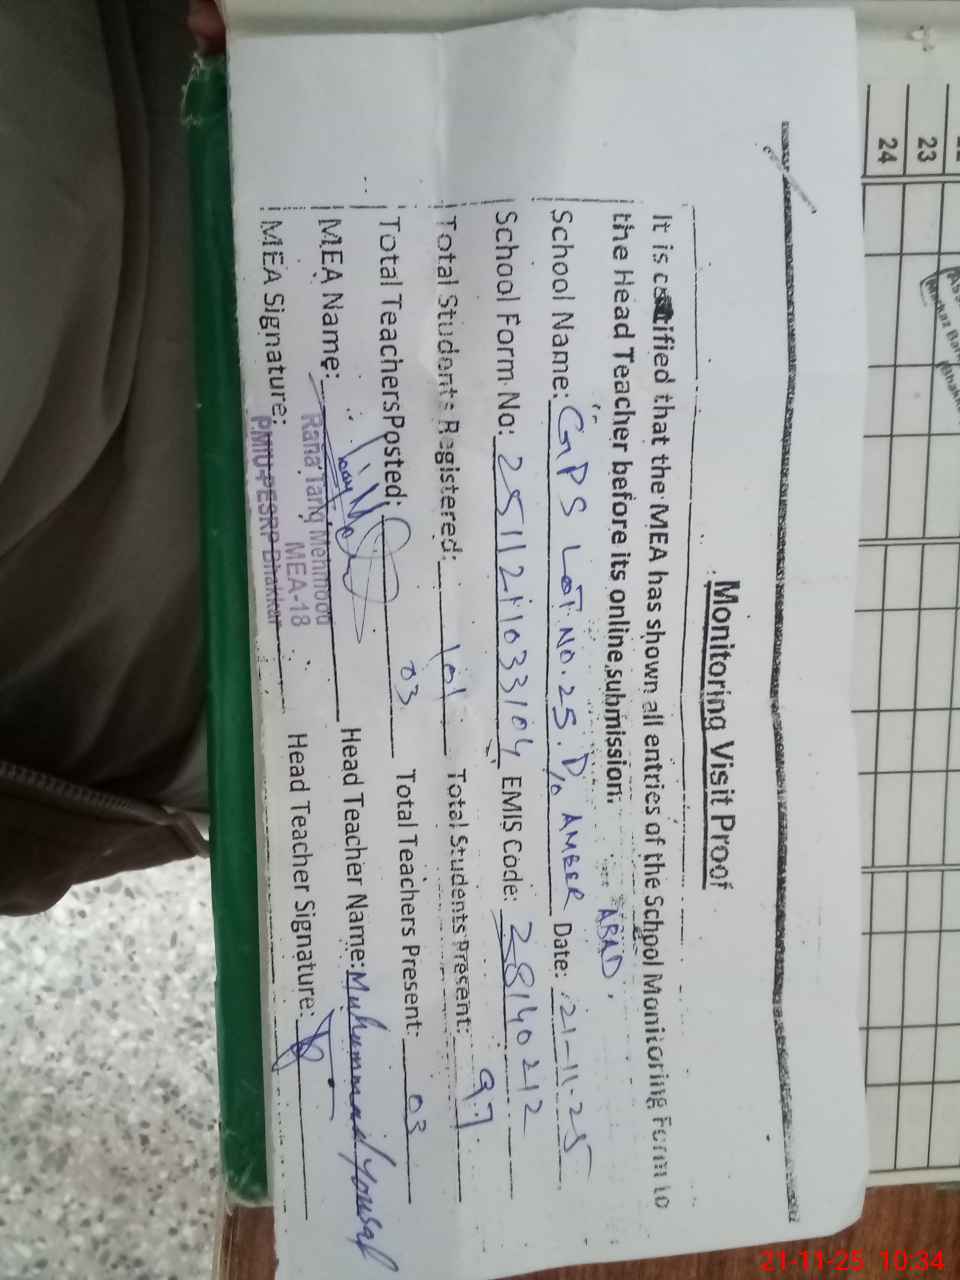 Monitoring Visit Proof
It is certified that the MEA has shown all entries of the School Monitoring Form to
the Head Teacher before its online submission.
School Name: GPS LOT NO. 25. D/o AMBER ABAD. Date: 21-11-25
School Form No: 2511211033104 EMIS Code: 38140212
Total Students Registered: 101 Total Students Present: 97
Total Teachers Posted: 03 Total Teachers Present: 03
MEA Name: Head Teacher Name: Muhummad Yousaf
MEA Signature: Head Teacher Signature:
Rana Tariq Mehmood
MEA-18
PMIU-PESRP Bhakkar
23
24
21-11-25 10:34